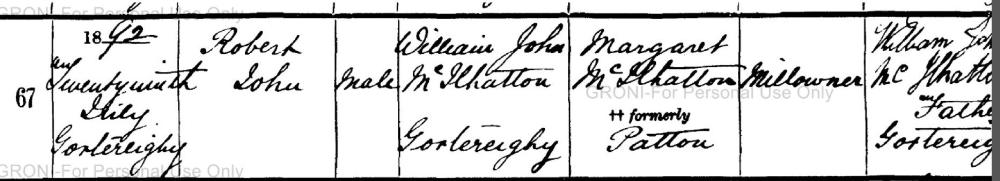 GRONI-For Personal Use Only
67
1892
Twentyninth
July
Gortereighy
Robert
John
Male
William John
McIlhatton
Gortereighy
Margaret
McIlhatton
†† formerly
Patton
Millowner
William Joh
McIlhatto
Fathe
Gortereig
GRONI-For Personal Use Only
GRONI-For Personal Use Only
GRONI-For Personal Use Only